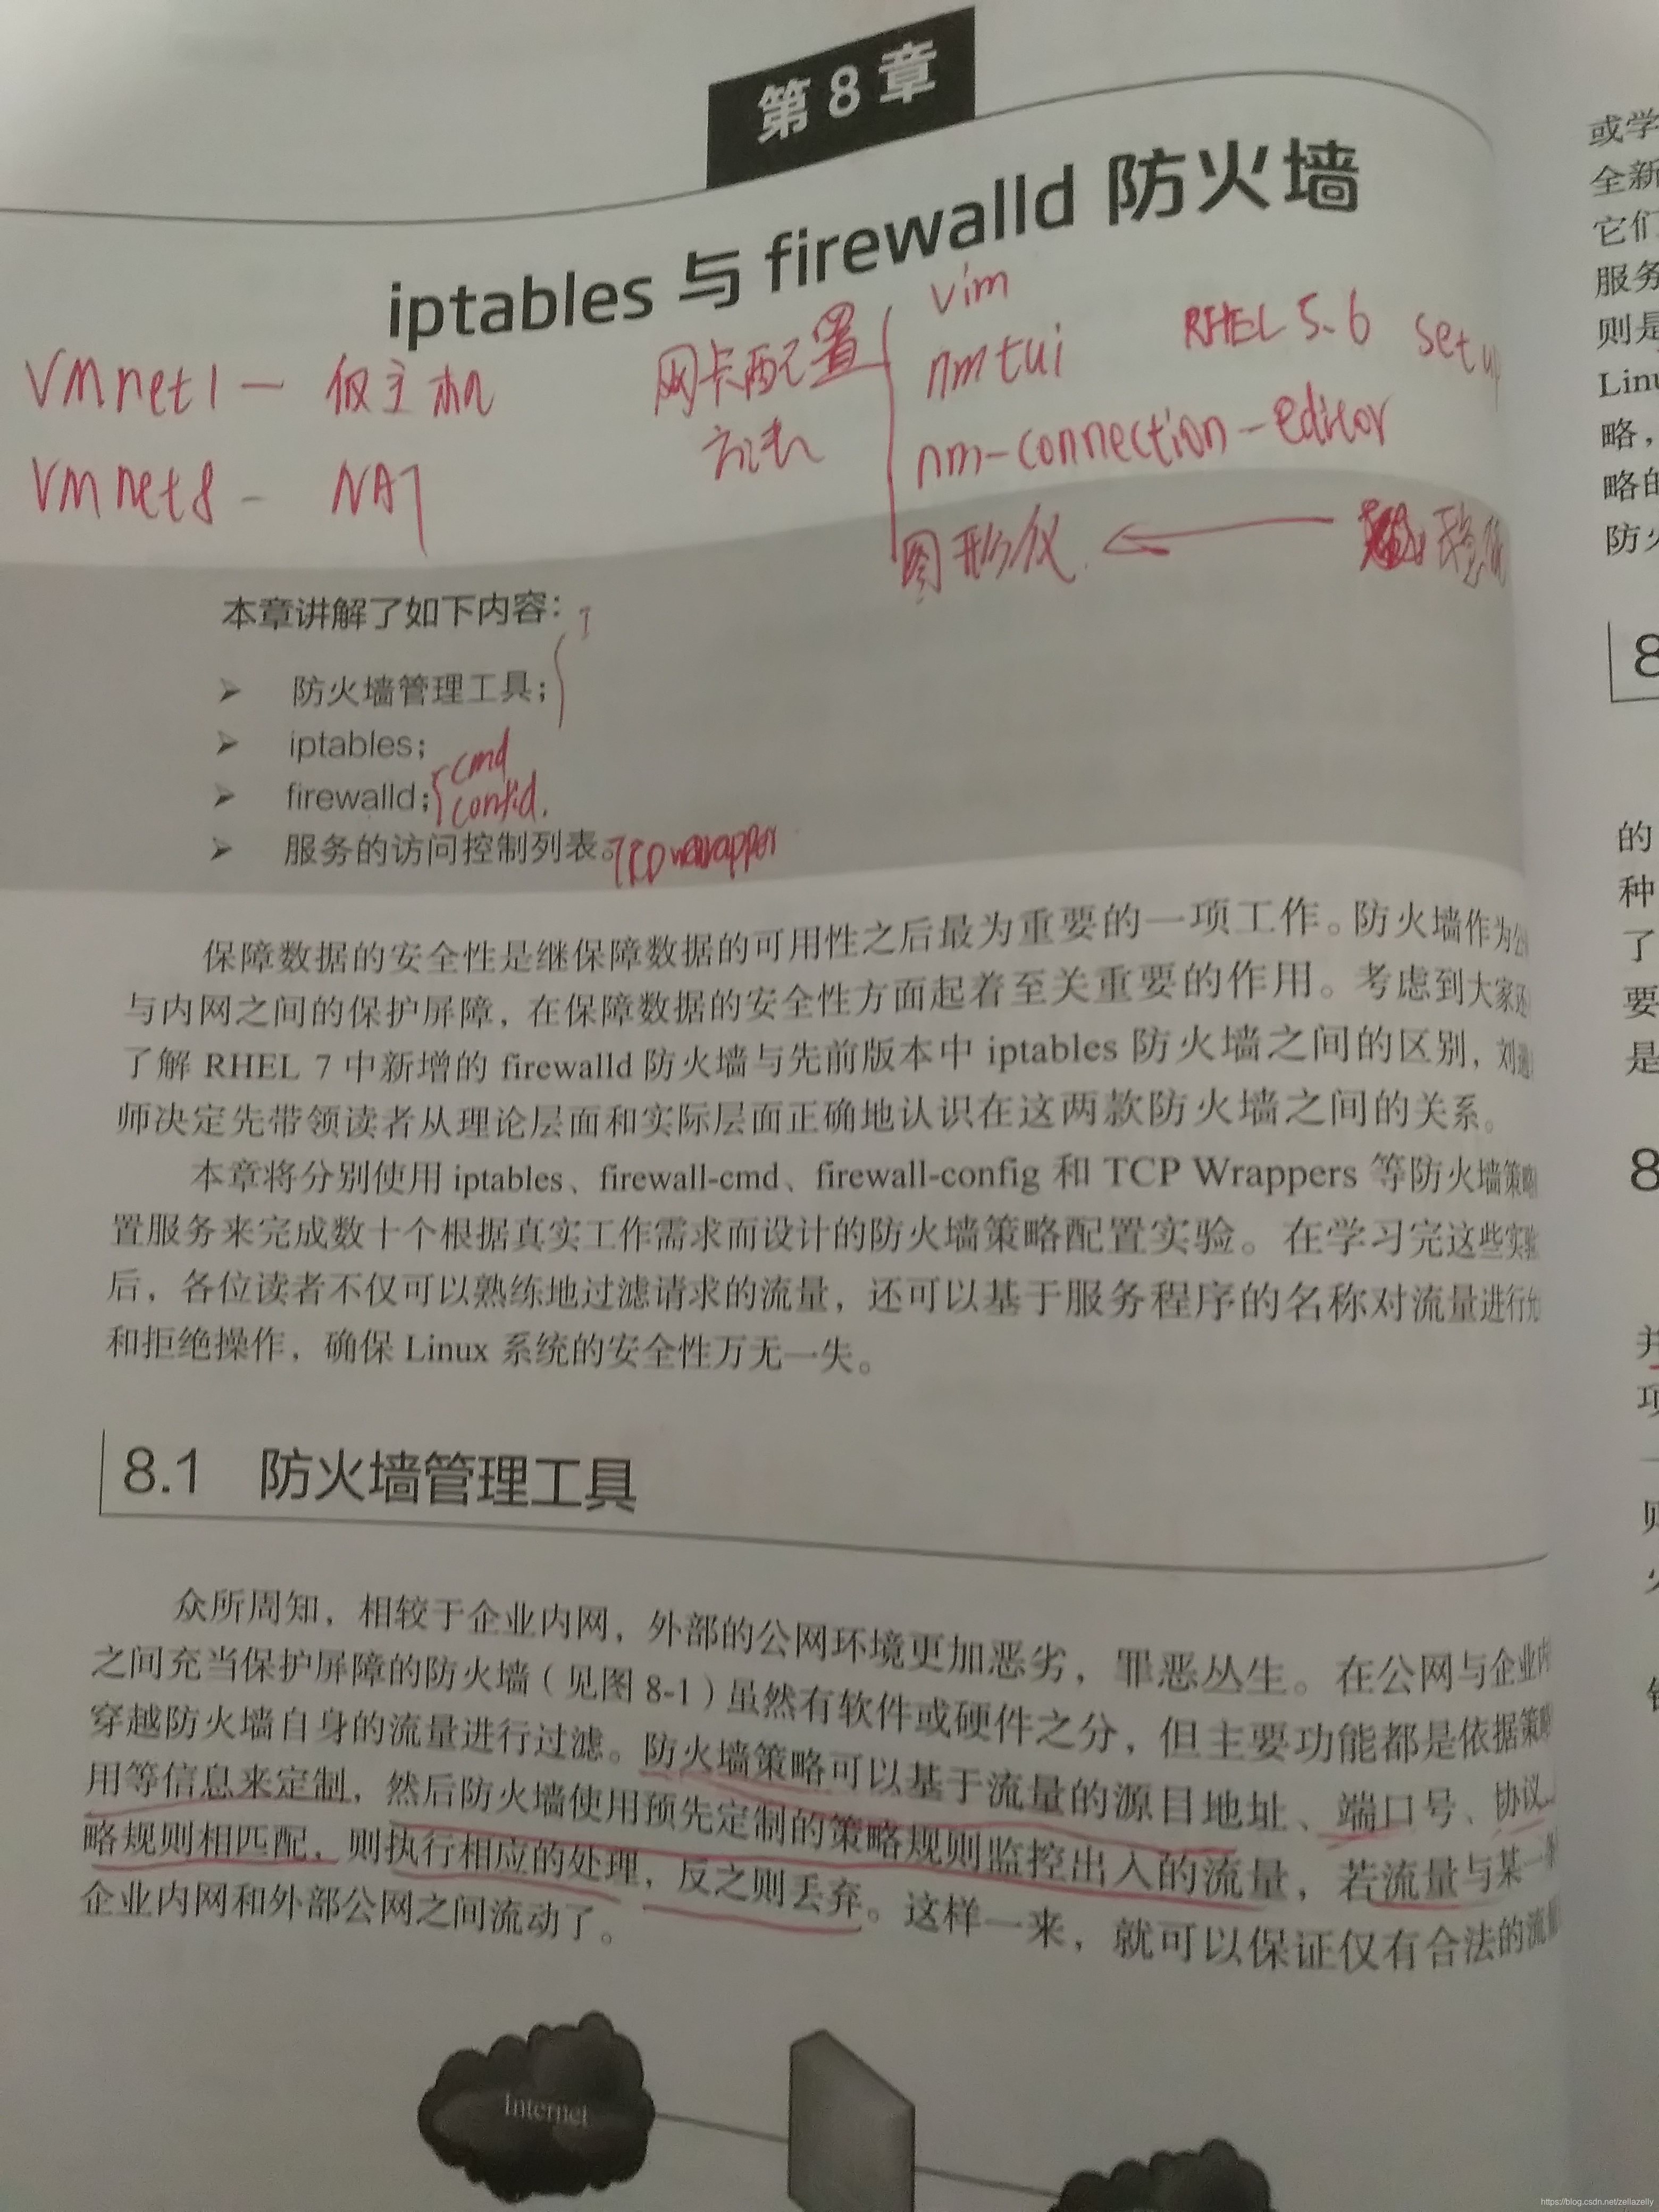 第8章
iptables 与 firewalld 防火墙
vim
VMnet1 — 仅主机
网卡配置
nmtui
RHEL 5、6 setu
VMnet8 - NAT
nm-connection-editor
图形
本章讲解了如下内容：
➢ 防火墙管理工具；
➢ iptables；
cmd
➢ firewalld；
➢ 服务的访问控制列表。
保障数据的安全性是继保障数据的可用性之后最为重要的一项工作。防火墙作为公
与内网之间的保护屏障，在保障数据的安全性方面起着至关重要的作用。考虑到大家还
了解 RHEL 7 中新增的 firewalld 防火墙与先前版本中 iptables 防火墙之间的区别，刘遄
师决定先带领读者从理论层面和实际层面正确地认识在这两款防火墙之间的关系。
本章将分别使用 iptables、firewall-cmd、firewall-config 和 TCP Wrappers 等防火墙策略
置服务来完成数十个根据真实工作需求而设计的防火墙策略配置实验。在学习完这些实验
后，各位读者不仅可以熟练地过滤请求的流量，还可以基于服务程序的名称对流量进行允
和拒绝操作，确保 Linux 系统的安全性万无一失。
8.1 防火墙管理工具
众所周知，相较于企业内网，外部的公网环境更加恶劣，罪恶丛生。在公网与企业内
之间充当保护屏障的防火墙（见图 8-1）虽然有软件或硬件之分，但主要功能都是依据策略
穿越防火墙自身的流量进行过滤。防火墙策略可以基于流量的源目地址、端口号、协议、
用等信息来定制，然后防火墙使用预先定制的策略规则监控出入的流量，若流量与某一
略规则相匹配，则执行相应的处理，反之则丢弃。这样一来，就可以保证仅有合法的流
企业内网和外部公网之间流动了。
Internet
或学
全新
它们
服务
则是
Linu
略，
略的
防火
8
的
种
了
要
是
8
项
https://blog.csdn.net/zellazelly